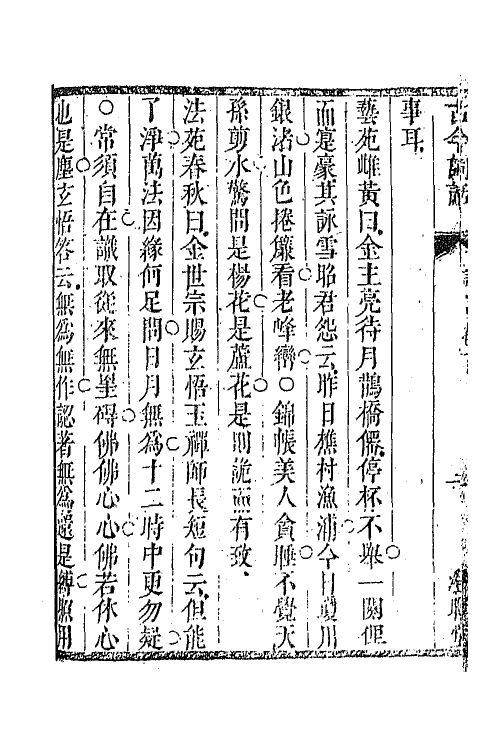 古今詞話
事耳
藝苑雌黃曰金主亮待月鵲橋僊停杯不舉一闋俚
而寔豪其詠雪昭君怨云昨日樵村漁浦今日瓊川
銀渚山色捲簾看老峰巒○錦帳美人貪睡不覺天
孫剪水驚問是楊花是蘆花是則詭而有致
法苑春秋曰金世宗賜玄悟玉禪師長短句云但能
了淨萬法因緣何足問日月無為十二時中更勿疑
○常須自在識取從來無罣碍佛佛心心佛若休心
也是塵玄悟答云無為無作認著無為還是縛照用